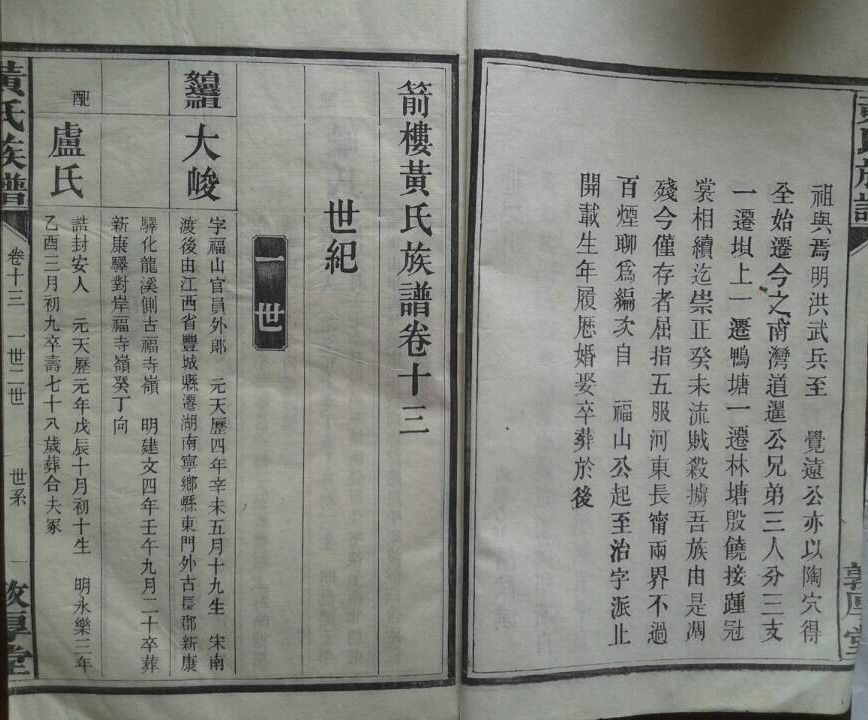 祖與焉明洪武兵至　覺遠公亦以陶穴得
全始遷今之南灣道暹公兄弟三人分三支
一遷垻上一遷鴨塘一遷林塘殷饒接踵冠
裳相續迄崇正癸未流賊殺擄吾族由是凋
殘今僅存者屈指五服河東長甯兩界不過
百煙聊爲編次自　福山公起至治字派止
開載生年履歷婚娶卒葬於後
箭樓黃氏族譜卷十三
世紀
一世
大峻
字福山官員外郎　元天歷四年辛未五月十九生　宋南
渡後由江西省豐城縣遷湖南寧鄉縣東門外古長郡新康
驛化龍溪側古福寺嶺　明建文四年壬午九月二十卒葬
新康驛對岸福寺嶺癸丁向
配
盧氏
誥封安人　元天歷元年戊辰十月初十生　明永樂三年
乙酉三月初九卒壽七十八歲葬合夫冢
黃氏族譜
卷十三　一世二世　世系　一
敦厚堂